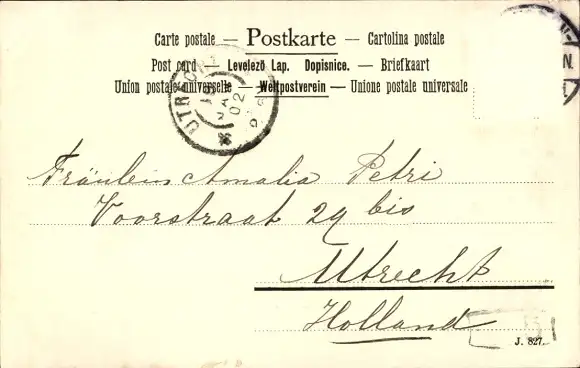 Carte postale — Postkarte — Cartolina postale
Post card — Levelező Lap. Dopisnice. — Briefkaart
Union postale universelle — Weltpostverein — Unione postale universale
UTRECHT
02
Fräulein Amalia Petri
Voorstraat 29 bis
Utrecht
Holland
J. 827.